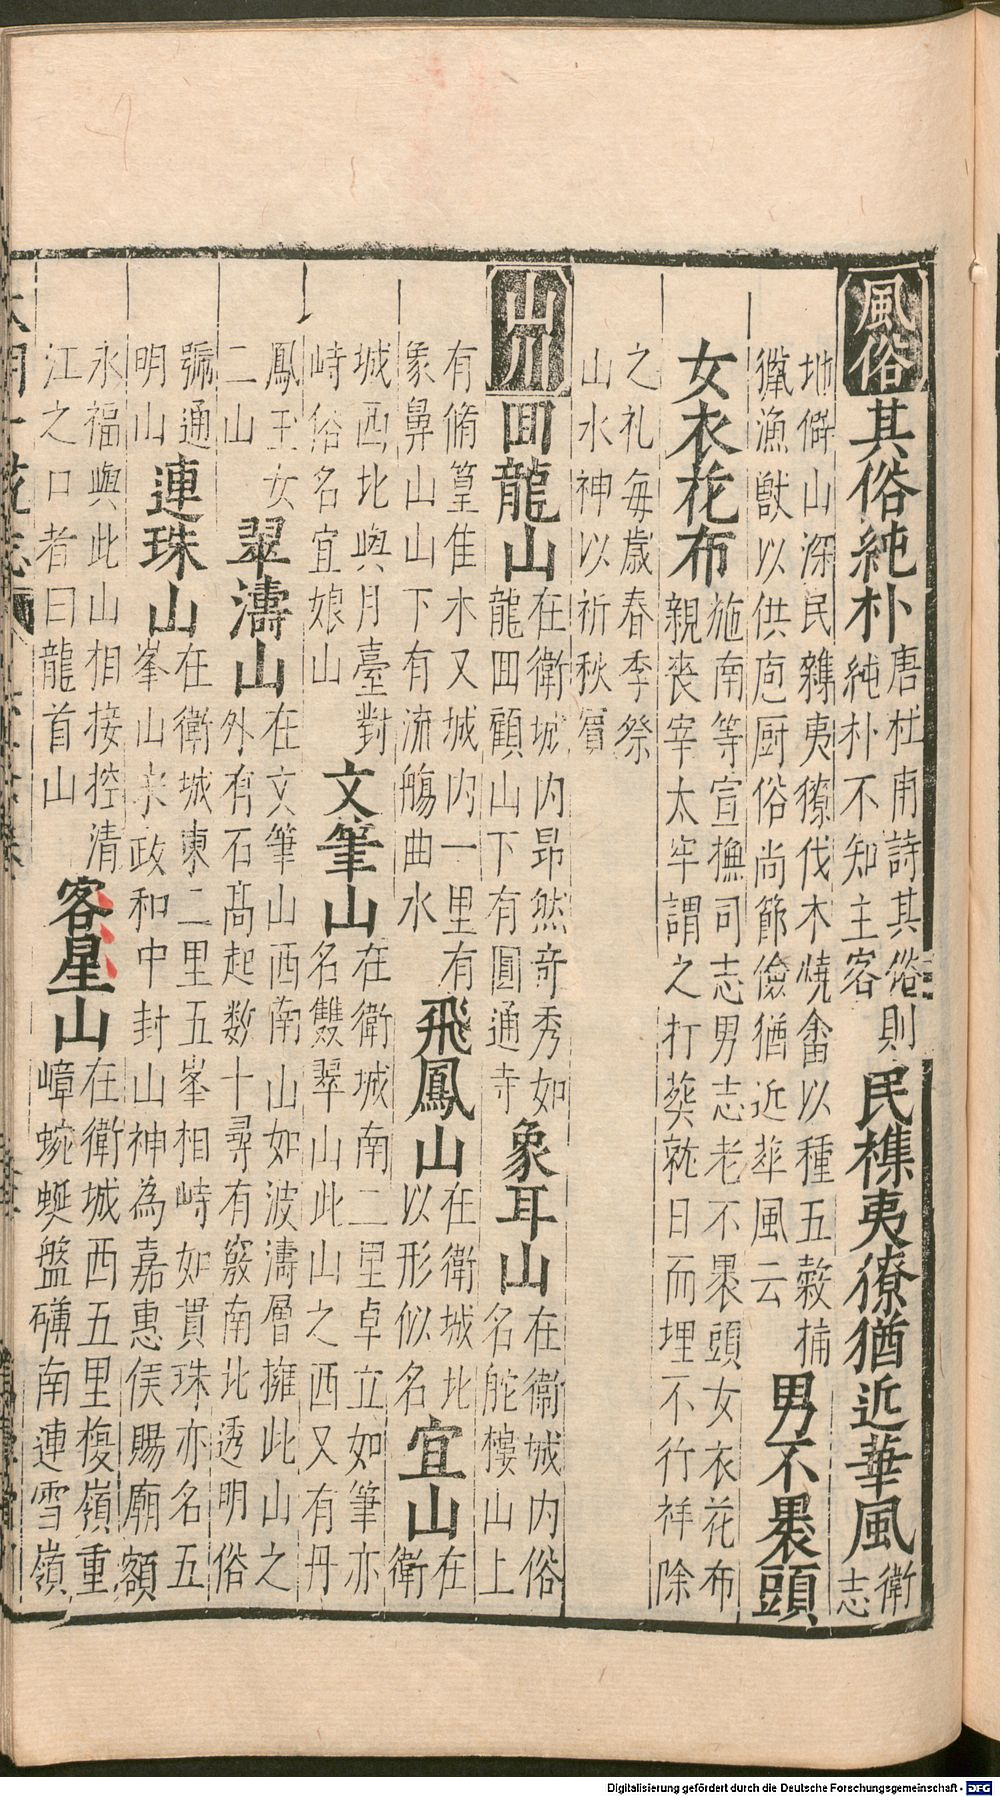 風俗 其俗純朴 唐杜甫詩其俗則純朴不知主客 民樵夷獠猶近華風 衛志
地僻山深民雜夷獠伐木燒畬以種五穀捕
獵漁獸以供庖厨俗尚節儉猶近華風云 男不褁頭
女衣花布 施南等宣撫司志男志老不褁頭女衣花布
親喪宰太牢謂之打葬就日而埋不行祥除
之礼每歳春季祭
山水神以祈秋
山川 囬龍山 在衛城内昻然竒秀如龍囬顧山下有圓通寺 象耳山 在衛城内俗名舵樓山上
有脩篁佳木又城内一里有
象鼻山山下有流觴曲水 飛鳳山 在衛城北以形似名 宜山 在衛
城西北與月臺對
峙俗名宜娘山 文筆山 在衛城南二里卓立如筆亦名雙翠山此山之西又有丹
鳳玉女
二山 翠濤山 在文筆山西南山如波濤層擁此山之外有石髙起数十尋有竅南北透明俗
號通
明山 連珠山 在衛城東二里五峯相峙如貫珠亦名五峯山宋政和中封山神為嘉惠侯賜廟額
永福與此山相接控清
江之口者曰龍首山 客星山 在衛城西五里複嶺重嶂蜿蜒盤礴南連雪嶺